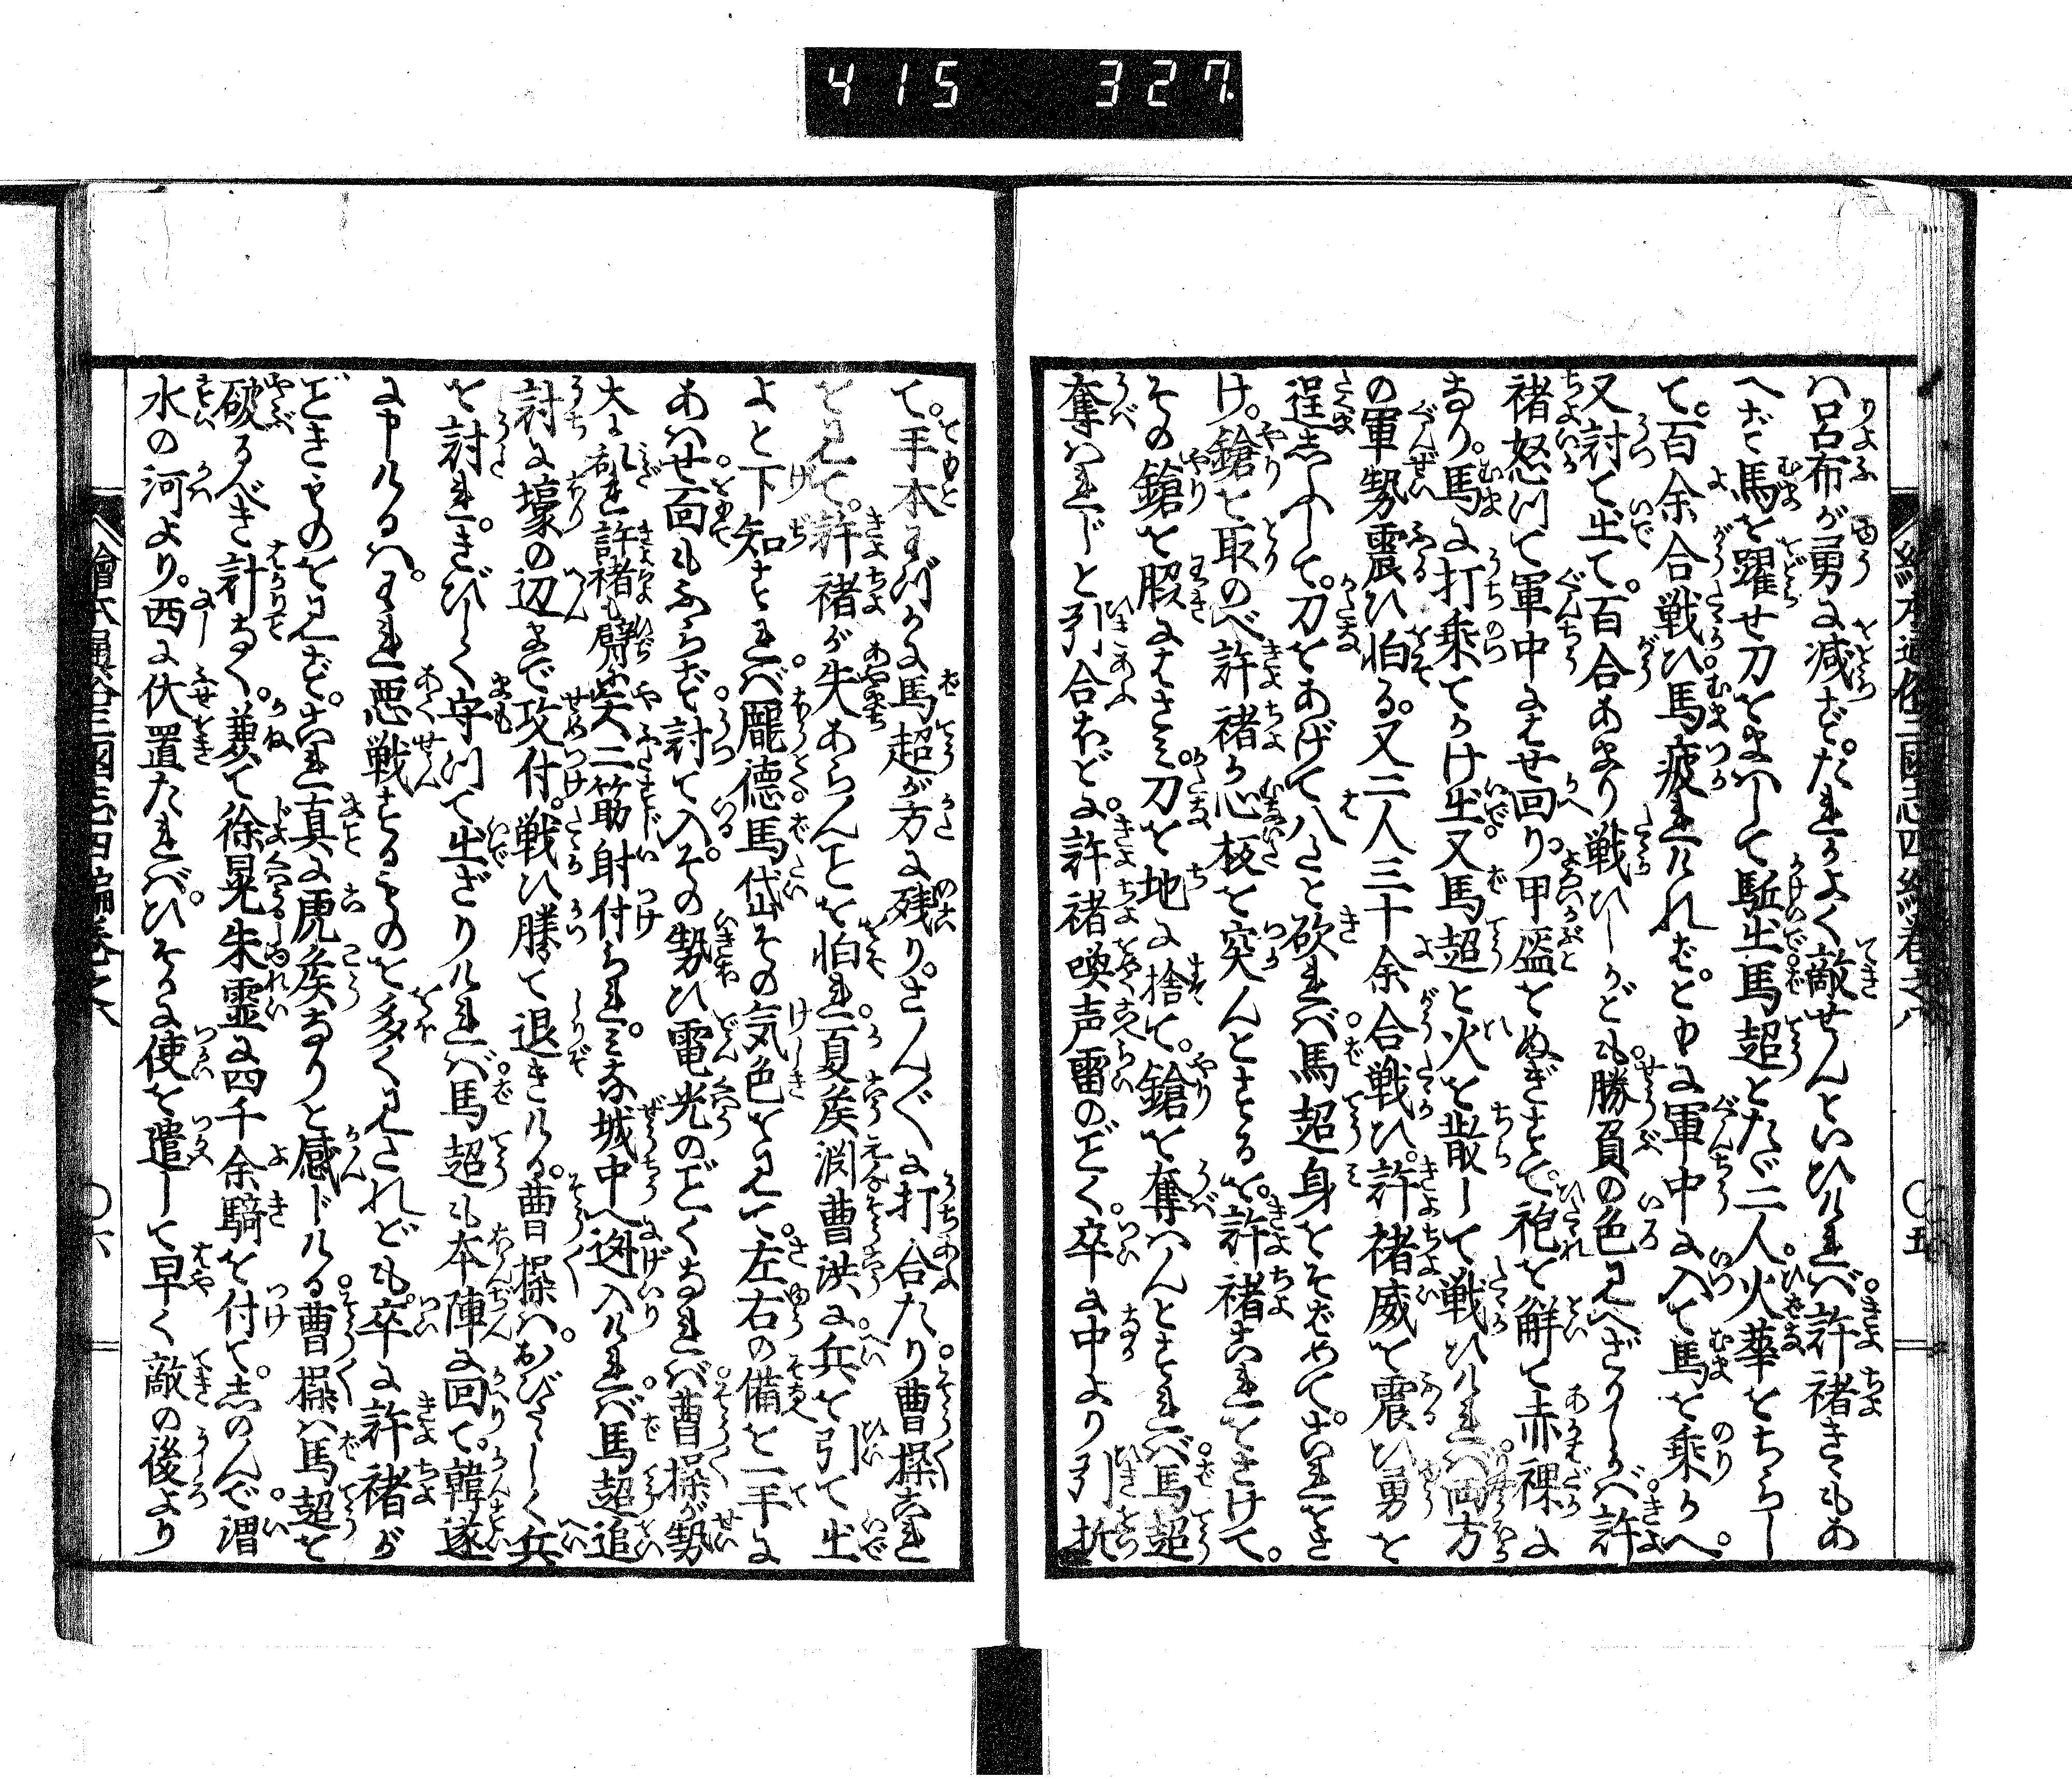 415 327
絵本通俗三国志四編巻之八 〇五
ハ呂布が勇に減ぜず。たれかよく敵せんといひければ。許褚きゝもあ
へず馬を躍せ刀をまハして駈出。馬超とたゞ二人。火華をちらし
て。百余合戦ひ。馬疲れければ。とも に軍中に入て馬を乗かへ。
又討て出て。百合あまり戦ひしかども。勝負の色見へざりしかバ。許
褚怒つて軍中にはせ回り。甲盔をぬぎすて。袍を解て赤裸に
なり。馬に打乗てかけ出。又馬超と火を散して戦ひければ。両方
の軍勢震ひ怕る。又二人三十余合戦ひ。許褚威を震ひ勇を
逞しふして。刀をあげて八たと砍れば。馬超身をそばめて。これをさ
け。鎗を取のべ許褚が心板を突んとするを。許褚これをさけて。
その鎗を脇にはさミ。刀を地に捨て。鎗を奪ハんとすれバ。馬超
奪ハれじと引合ほどに。許褚喚声雷のごとく。卒に中より引折
て。手本わづかに馬超が方に残り。さん〴〵に打合たり。曹操これ
を見て。許褚が失あらんことを怕れ。夏侯淵曹洪に兵を引て出
よと下知すれバ。龐徳馬岱その気色を見て。左右の備を一手に
あハせ。面もふらず討て入。その勢ひ電光のごとくなれバ。曹操が勢
大に乱れ。許褚も臂に矢二筋射付られ。ミな城中へ迯入ければ。馬超追
討に壕の辺まで攻付。戦ひ勝て退きける。曹操ハ。おびたゝしく兵
を討れ。きびしく守つて出ざりけれバ。馬超も本陣に回て。韓遂
に申けるハ。われ悪戦するものを多く見されども。卒に許褚が
ごときものを見ず。これ真に虎侯なりと感じける。曹操ハ馬超を
破るべき計なく。兼て徐晃朱霊に四千余騎を付て。しのんで渭
水の河より。西に伏置たれバ。ひそかに使を遣して早く敵の後より
絵本通俗三国志四編巻之八 〇六